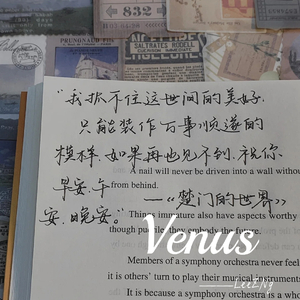 832
"我抓不住这世间的美好.
只能装作万事顺遂的
模样.如果再也见不到.祝你.
A nail will never be driven into a wall without
早安.午
from behind.
——《楚门的世界》
安.晚安."
Things immature also have aspects worthy
though puerile, they embody the future.
Venus
Members of a symphony orchestra never feel
it is others' turn to play their musical instruments
——LeeZNg
It is because a symphony orchestra is a wh